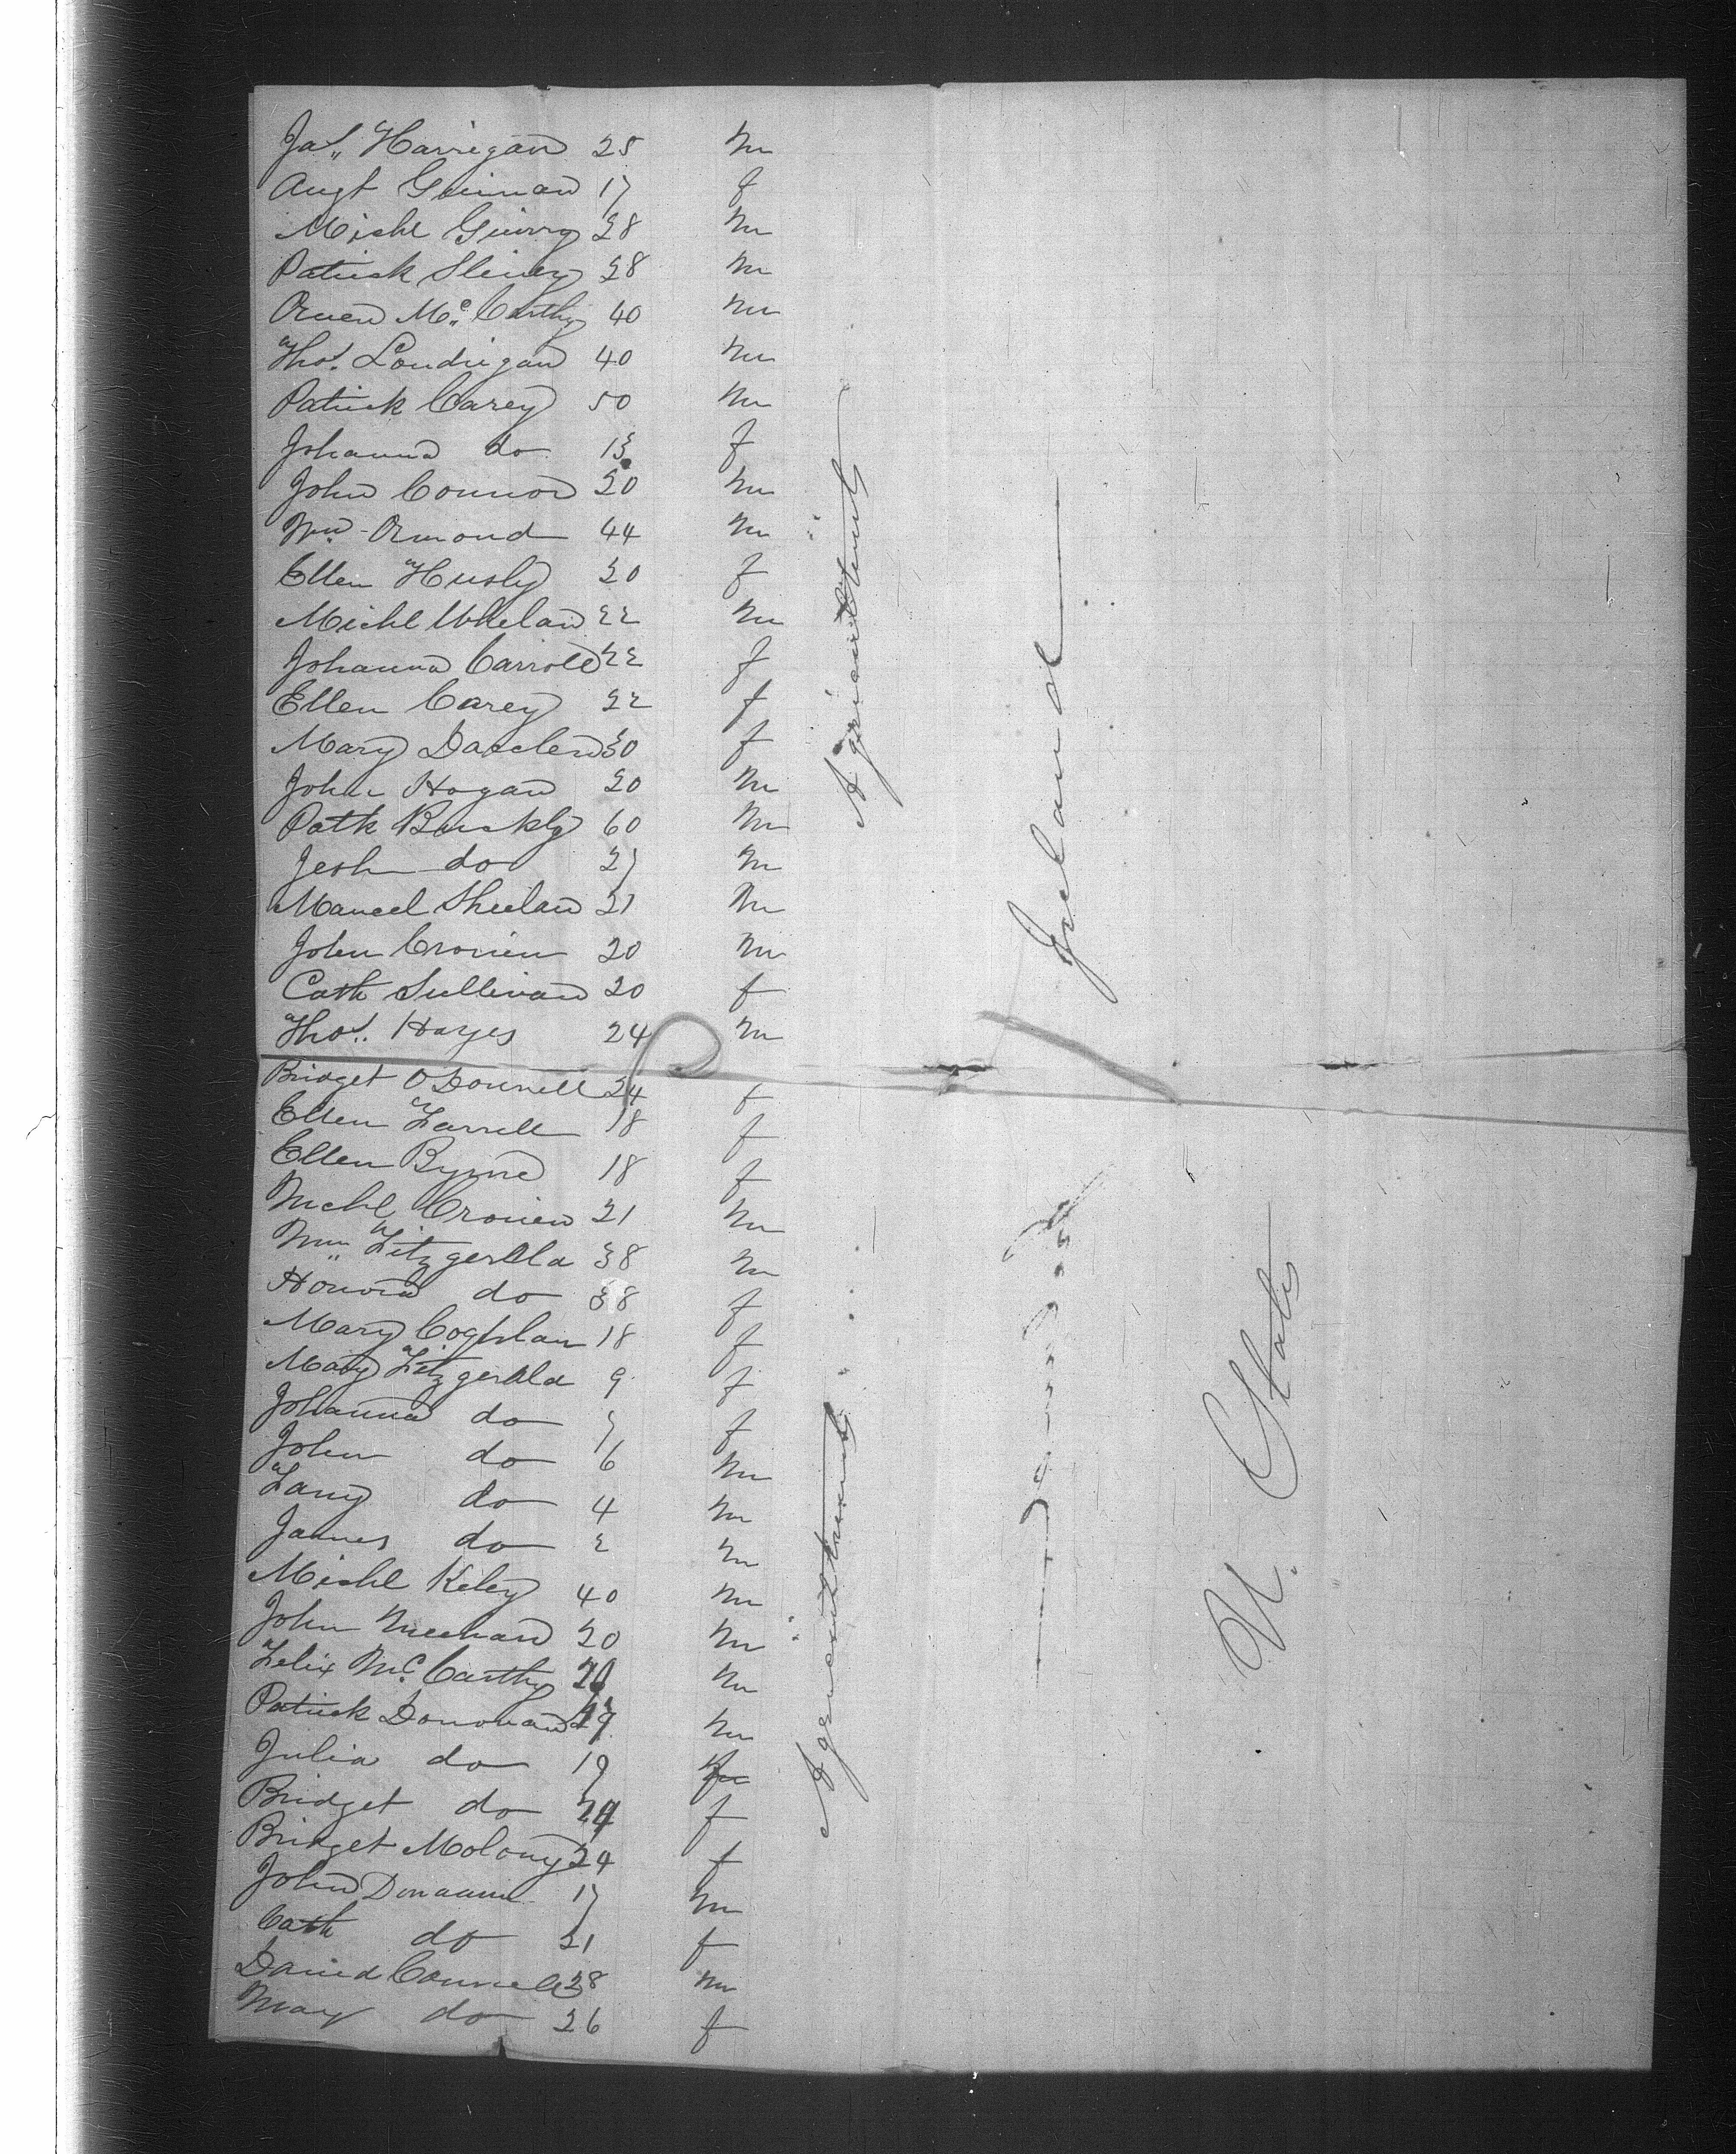 Jas. Harrigan 25 m
Augt Guinan 17 f
Michl Guiry 28 m
Patrick Sliney 28 m
Owen Mc. Carthy 40 m
Thos. Londrigan 40 m
Patrick Carey 50 m
Johanna do 13 f
John Connor 20 m
Wm. Ormond 44 m
Ellen Husly 20 f
Michl Whelan 22 m
Johanna Carroll 22 f
Ellen Carey 22 f
Mary 30 f
John Hogan 20 m
Patk Buckly 60 m
do 27 m
Sheelan 21 m
John Cronien 20 m
Cath Sullivan 20 f
Thos. Hayes 24 m
Bridget O Donnell 24 f
Ellen Farrell 18 f
Ellen Byrne 18 f
Michl Cronien 21 m
Wm Fitzgerald 38 m
Honora do 38 f
Mary Coghlan 18 f
Mary Fitzgerald 9 f
Johanna do 7 f
John do 6 m
do 4 m
James do 2 m
Michl Keley 40 m
John Meenan 20 m
Felix Mc. Carthy m
Patrick Donovan m
Julia do 19
Bridget do 24 f
Bridget Molony 24 f
John 17 m
Cath do 21 f
David Connell 28 m
Mary do 26 f
Ireland
U. States